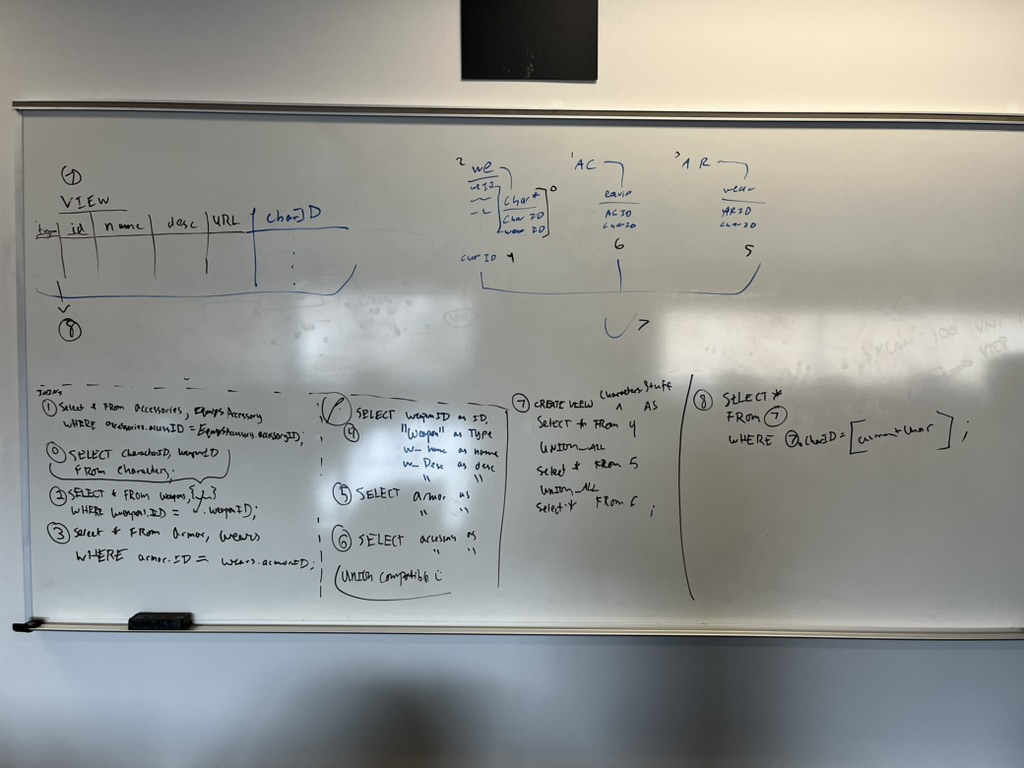 ⑦
VIEW
type id name desc URL charID
⑧
² WE
WeID
[ Char*
CharID
weap ID ] 0
charID 4
¹ AC
equip
ACID
CharID
6
³ AR
wear
ARID
CharID
5
7
Joins
① Select * FROM accessories, EquipsAccessory
WHERE accessories.accessID = EquipsAccessory.accessoryID;
⓪ SELECT characterID, weaponID
FROM Character;
② SELECT * FROM weapons, { }
WHERE weapons.ID = .weaponID;
③ Select * FROM armor, wears
WHERE armor.ID = wears.armorID;
④ SELECT weaponID as ID,
"Weapon" as Type
w_name as name
w_Desc as desc
" "
⑤ SELECT armor as
" "
⑥ SELECT accessory as
" "
UNION compatible
⑦ CREATE VIEW CharactersStuff AS
Select * From 4
UNION_ALL
Select * FROM 5
UNION_ALL
Select * FROM 6 ;
⑧ SELECT *
FROM ⑦
WHERE ⑦.charID = [current char] ;